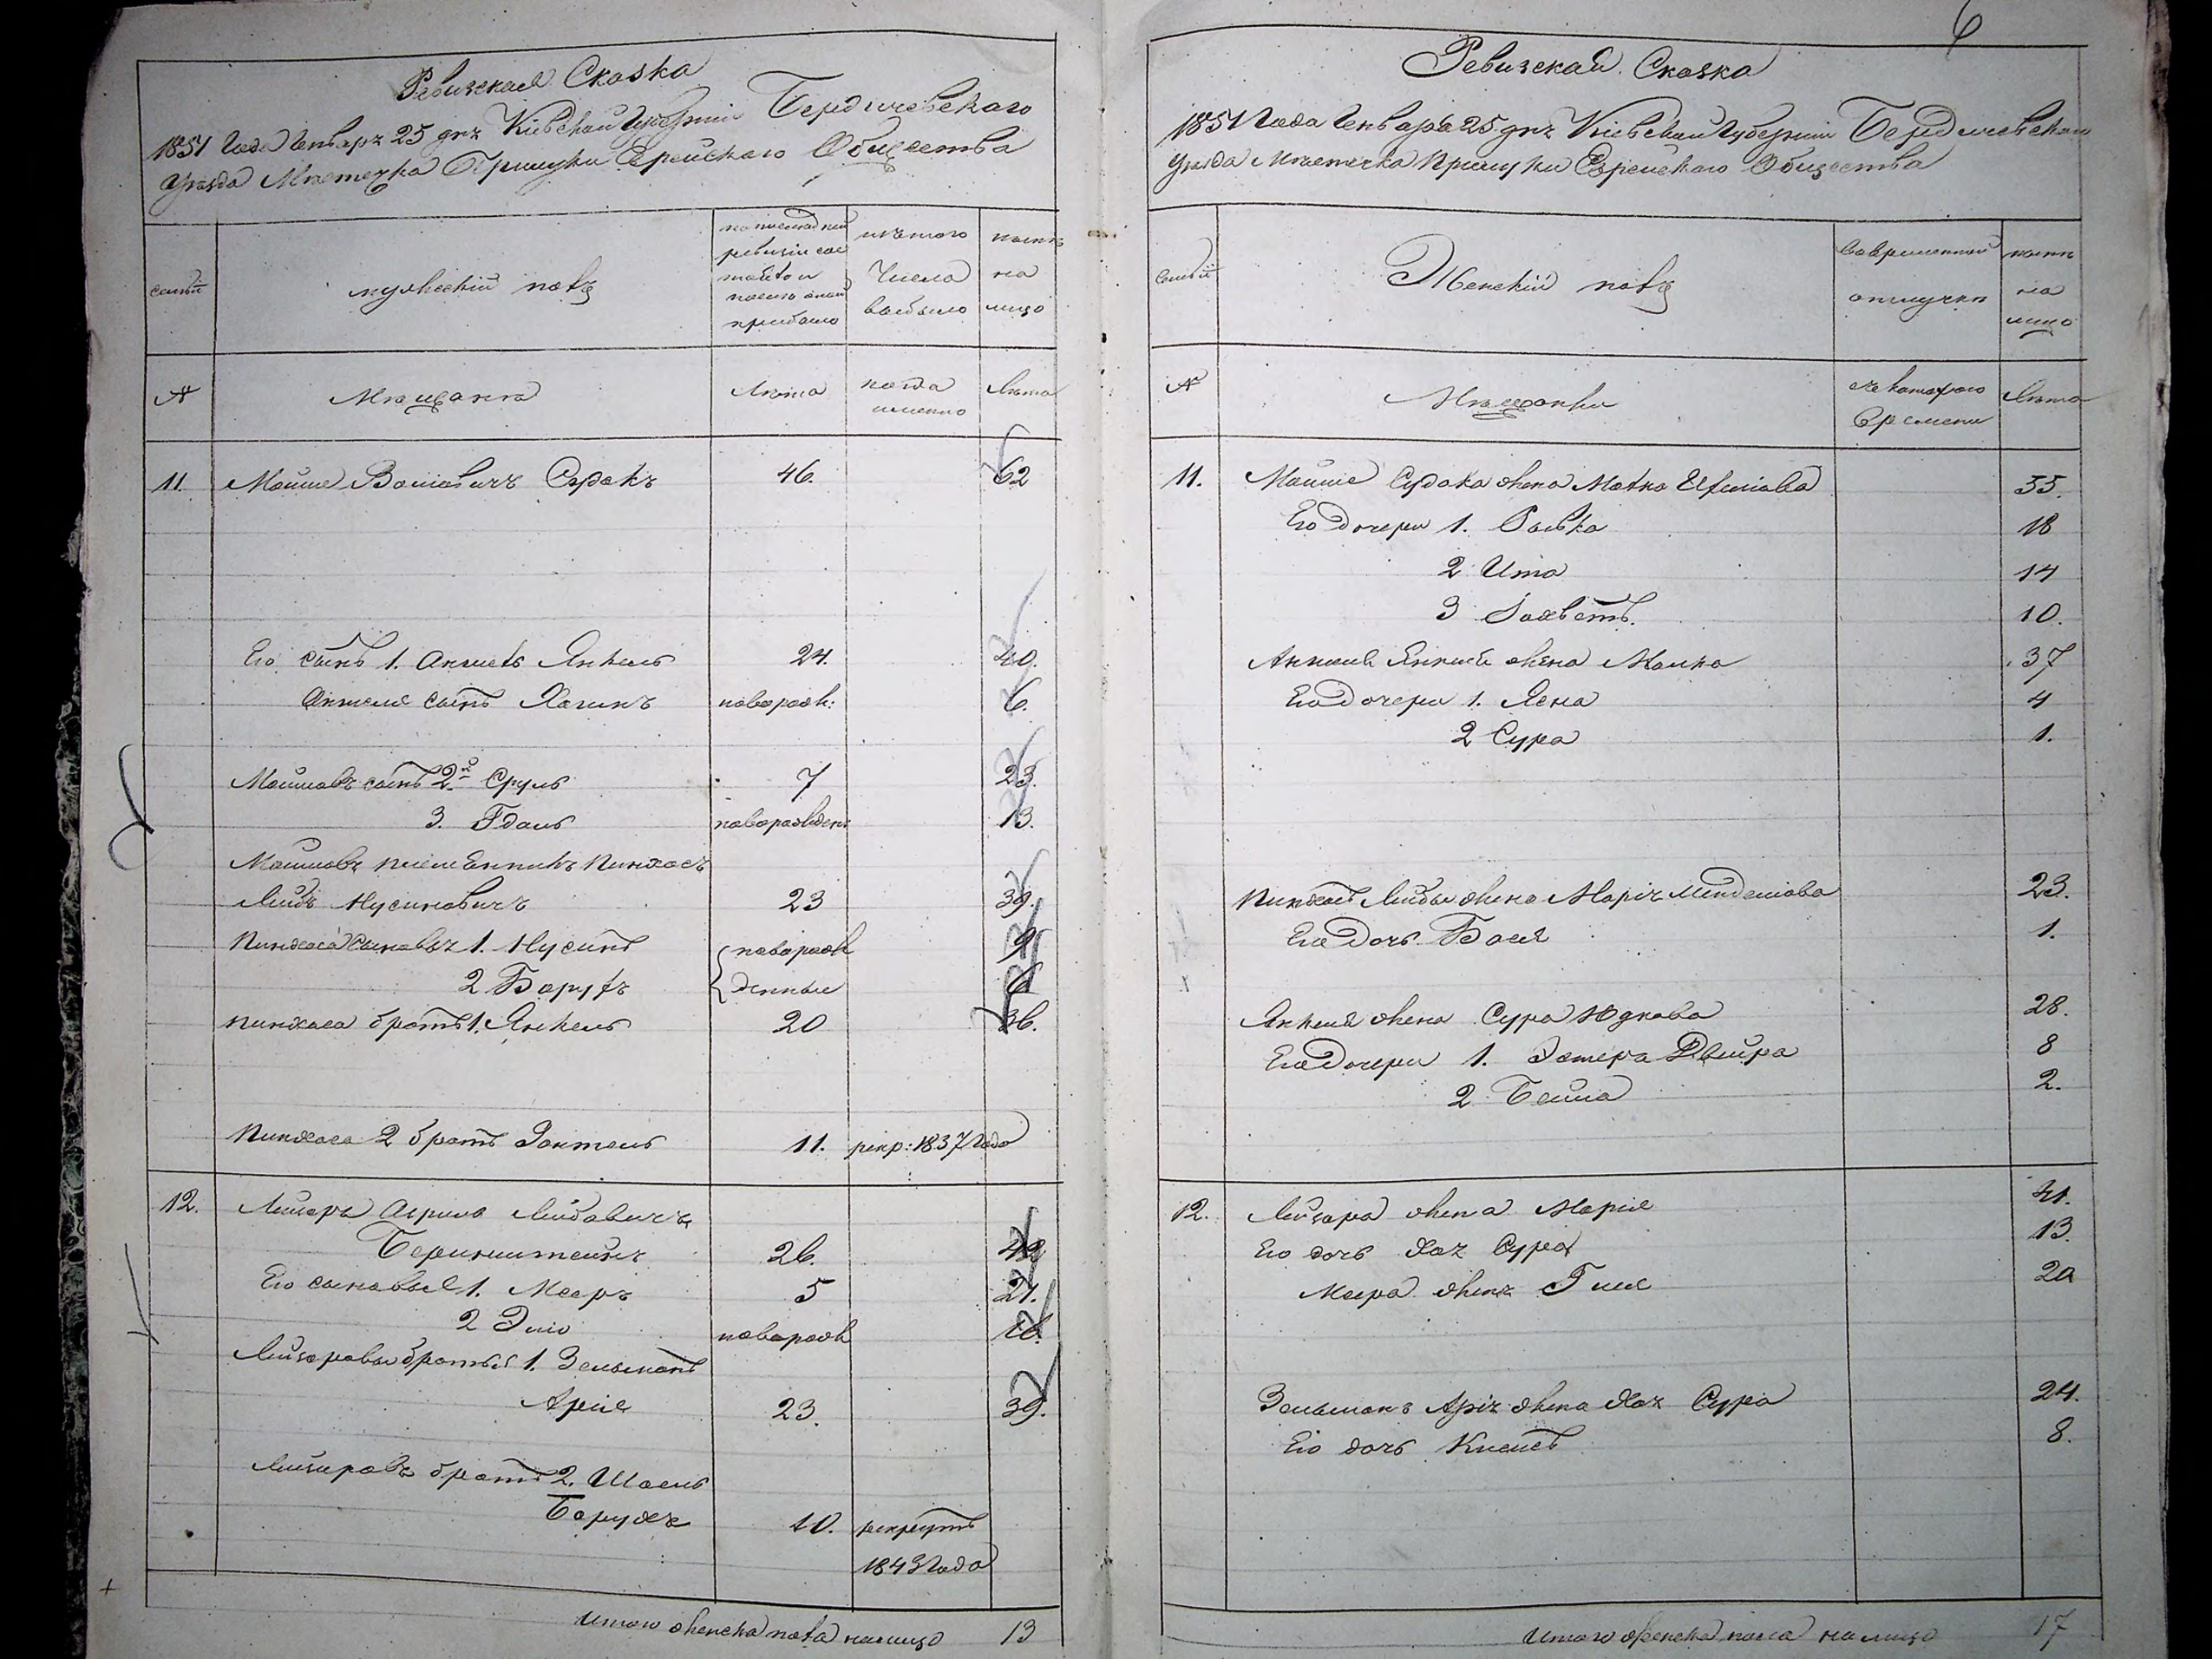 Ревизская Сказка
1851 Года Генваря 25 дня Кіевской Губерніи Бердичевскаго
Уѣзда Мѣстечка Прилуки Еврейскаго Общества
семьи
мужескій полъ
по последней
ревизіи сос
тояло и
после оной
прибыло
изъ того
числа
выбыло
нынѣ
на
лицо
№
Мѣщанъ
Лѣта
когда
именно
Лѣта
11. Мошко Судакъ 46. 62
Его сынъ 1. Аншель Янкель 24. 40.
Аншеля сынъ Хаимъ новорож: 6.
Мошковъ сынъ 2й Сруль 7 23.
3. Гдаль новорожден: 13.
Мошковъ племянникъ Пинхасъ
Лейбъ Нусимовичъ 23 39.
Пинхаса сыновья 1. Нусимъ новорож 9
2 Борухъ денные 6
Пинхаса братъ 1. Янкель 20 36.
Пинхаса 2 братъ 11. рекр: 1837 Года
12. Лейзоръ Лейбовичъ
Беринштейнъ 26. 42
Его сыновья 1. Мееръ 5 21.
2 Эліо новорож 16.
Лейзоровы братья 1. Зельманъ
Аріе 23. 39.
Лейзоровъ братъ 2. Шоель
Борухъ 10. рекрутъ
1843 Года
Итого женска пола налицо 13
6
Ревизская Сказка
1851 Года Генваря 25 дня Кіевской Губерніи Бердичевскаго
Уѣзда Мѣстечка Прилуки Еврейскаго Общества
семьи
Женскій полъ
во временной
отлучки
нынѣ
на
лицо
№
Мѣщанки
съ котораго
Времени
Лѣта
11. Мошко Судака жена 55.
Его дочери 1. 18
2 Ита 14
3 10.
Аншеля Янкеля жена Малка 37
Его дочери 1. 4
2 Сура 1.
Пинхаса Лейбы жена Марія Менделіова 23.
Его дочь Бася 1.
Янкеля жена Сура Юдкова 28.
Его дочери 1. Эстера Двейра 8
2 Бейла 2.
12. Лейзора жена Марія 41.
Его дочь Хая Сура 13.
Меера жена 20
Зельмана Арія жена Хая Сура 24.
Его дочь 8.
Итого женска пола налицо 17